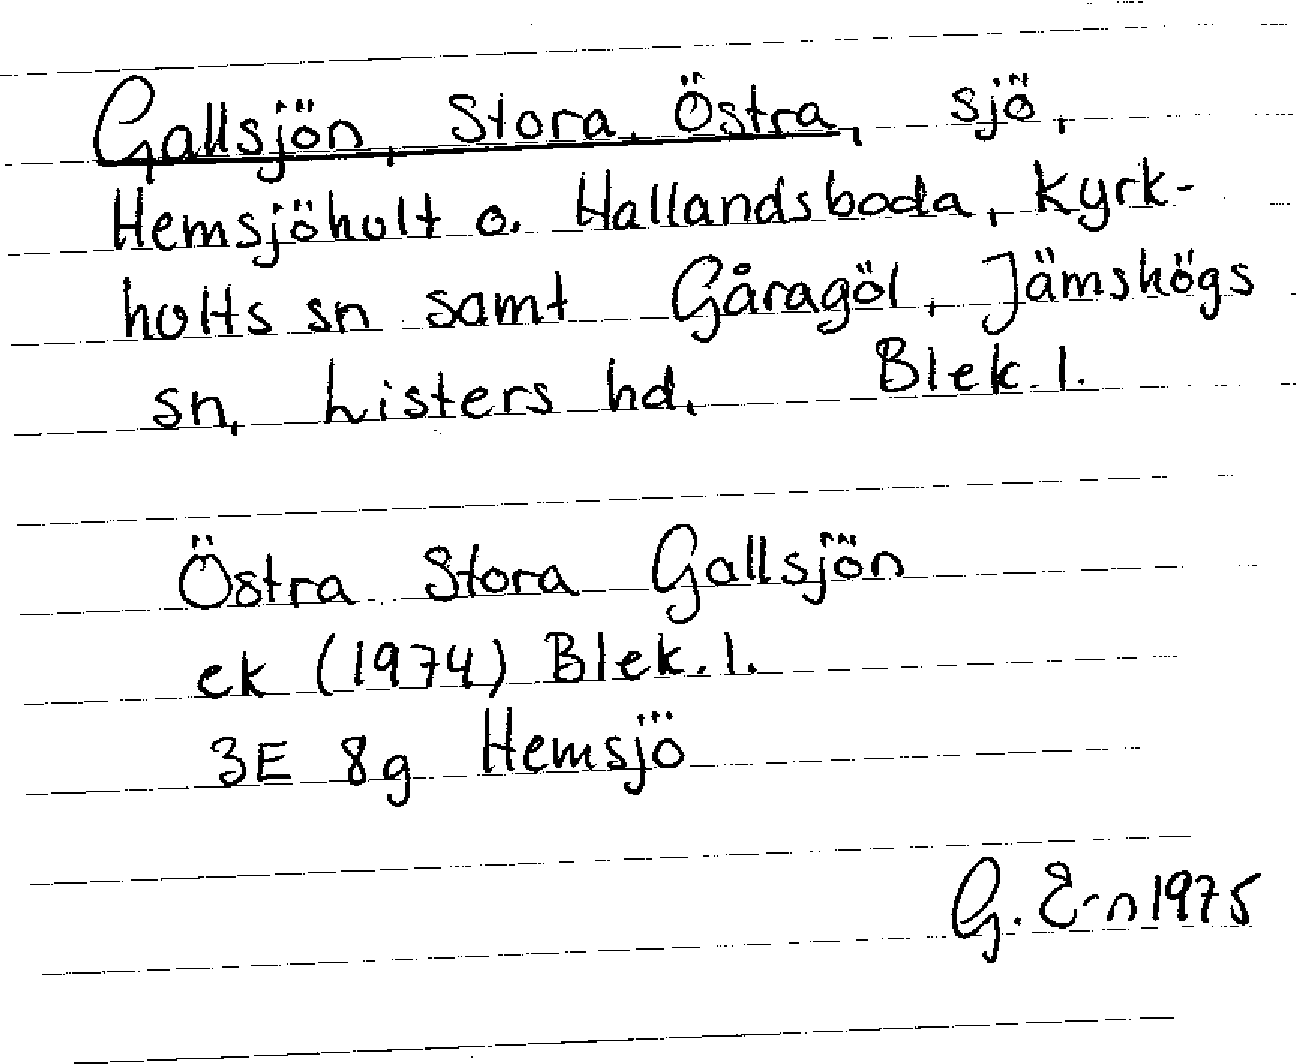 Gallsjön, Stora, Östra, sjö,
Hemsjöholt o. Hallandsboda, Kyrk-
hults sn samt Gåragöl, Jämshögs
sn, Listers hd, Blek. l.
Östra Stora Gallsjön
ek (1974) Blek. l.
3E 8g Hemsjö
G. E-n 1975